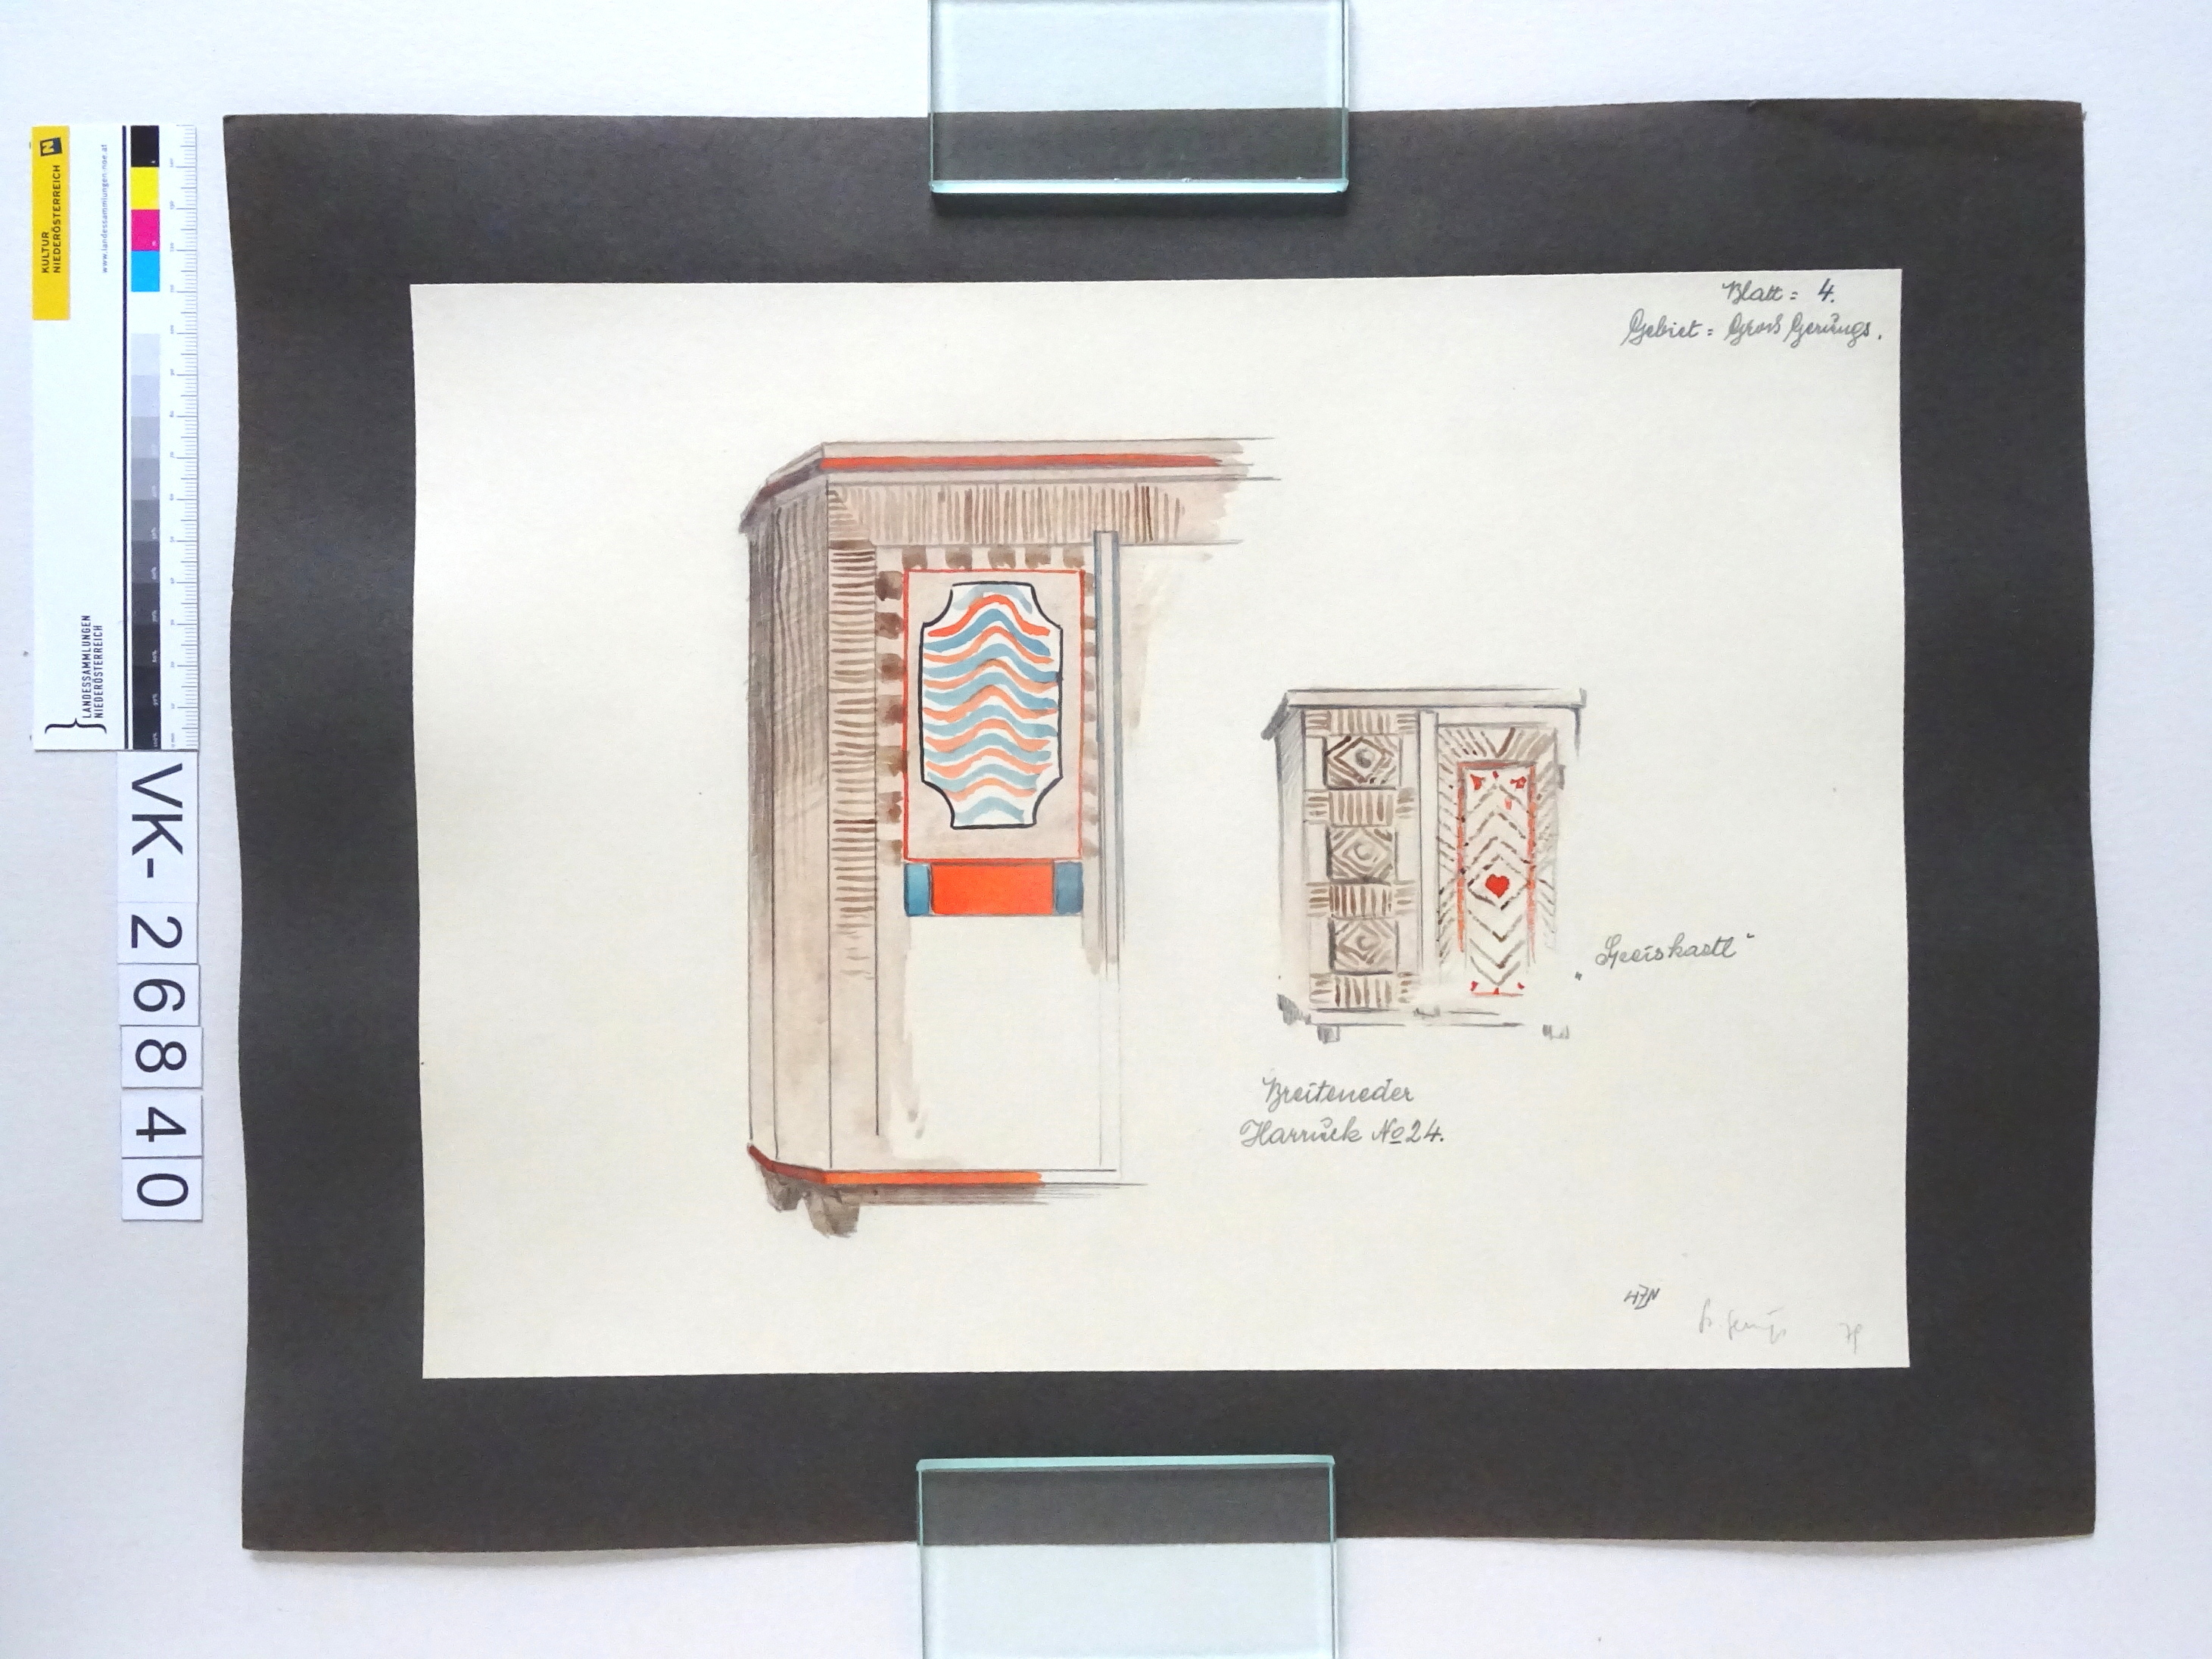 Blatt = 4.
Gebiet = Gross Gerungs.
„Speiskastl“
Breiteneder
Harruck No 24.
KULTUR
NIEDERÖSTERREICH
www.landessammlungen-noe.at
LANDESSAMMLUNGEN
NIEDERÖSTERREICH
VK-26840